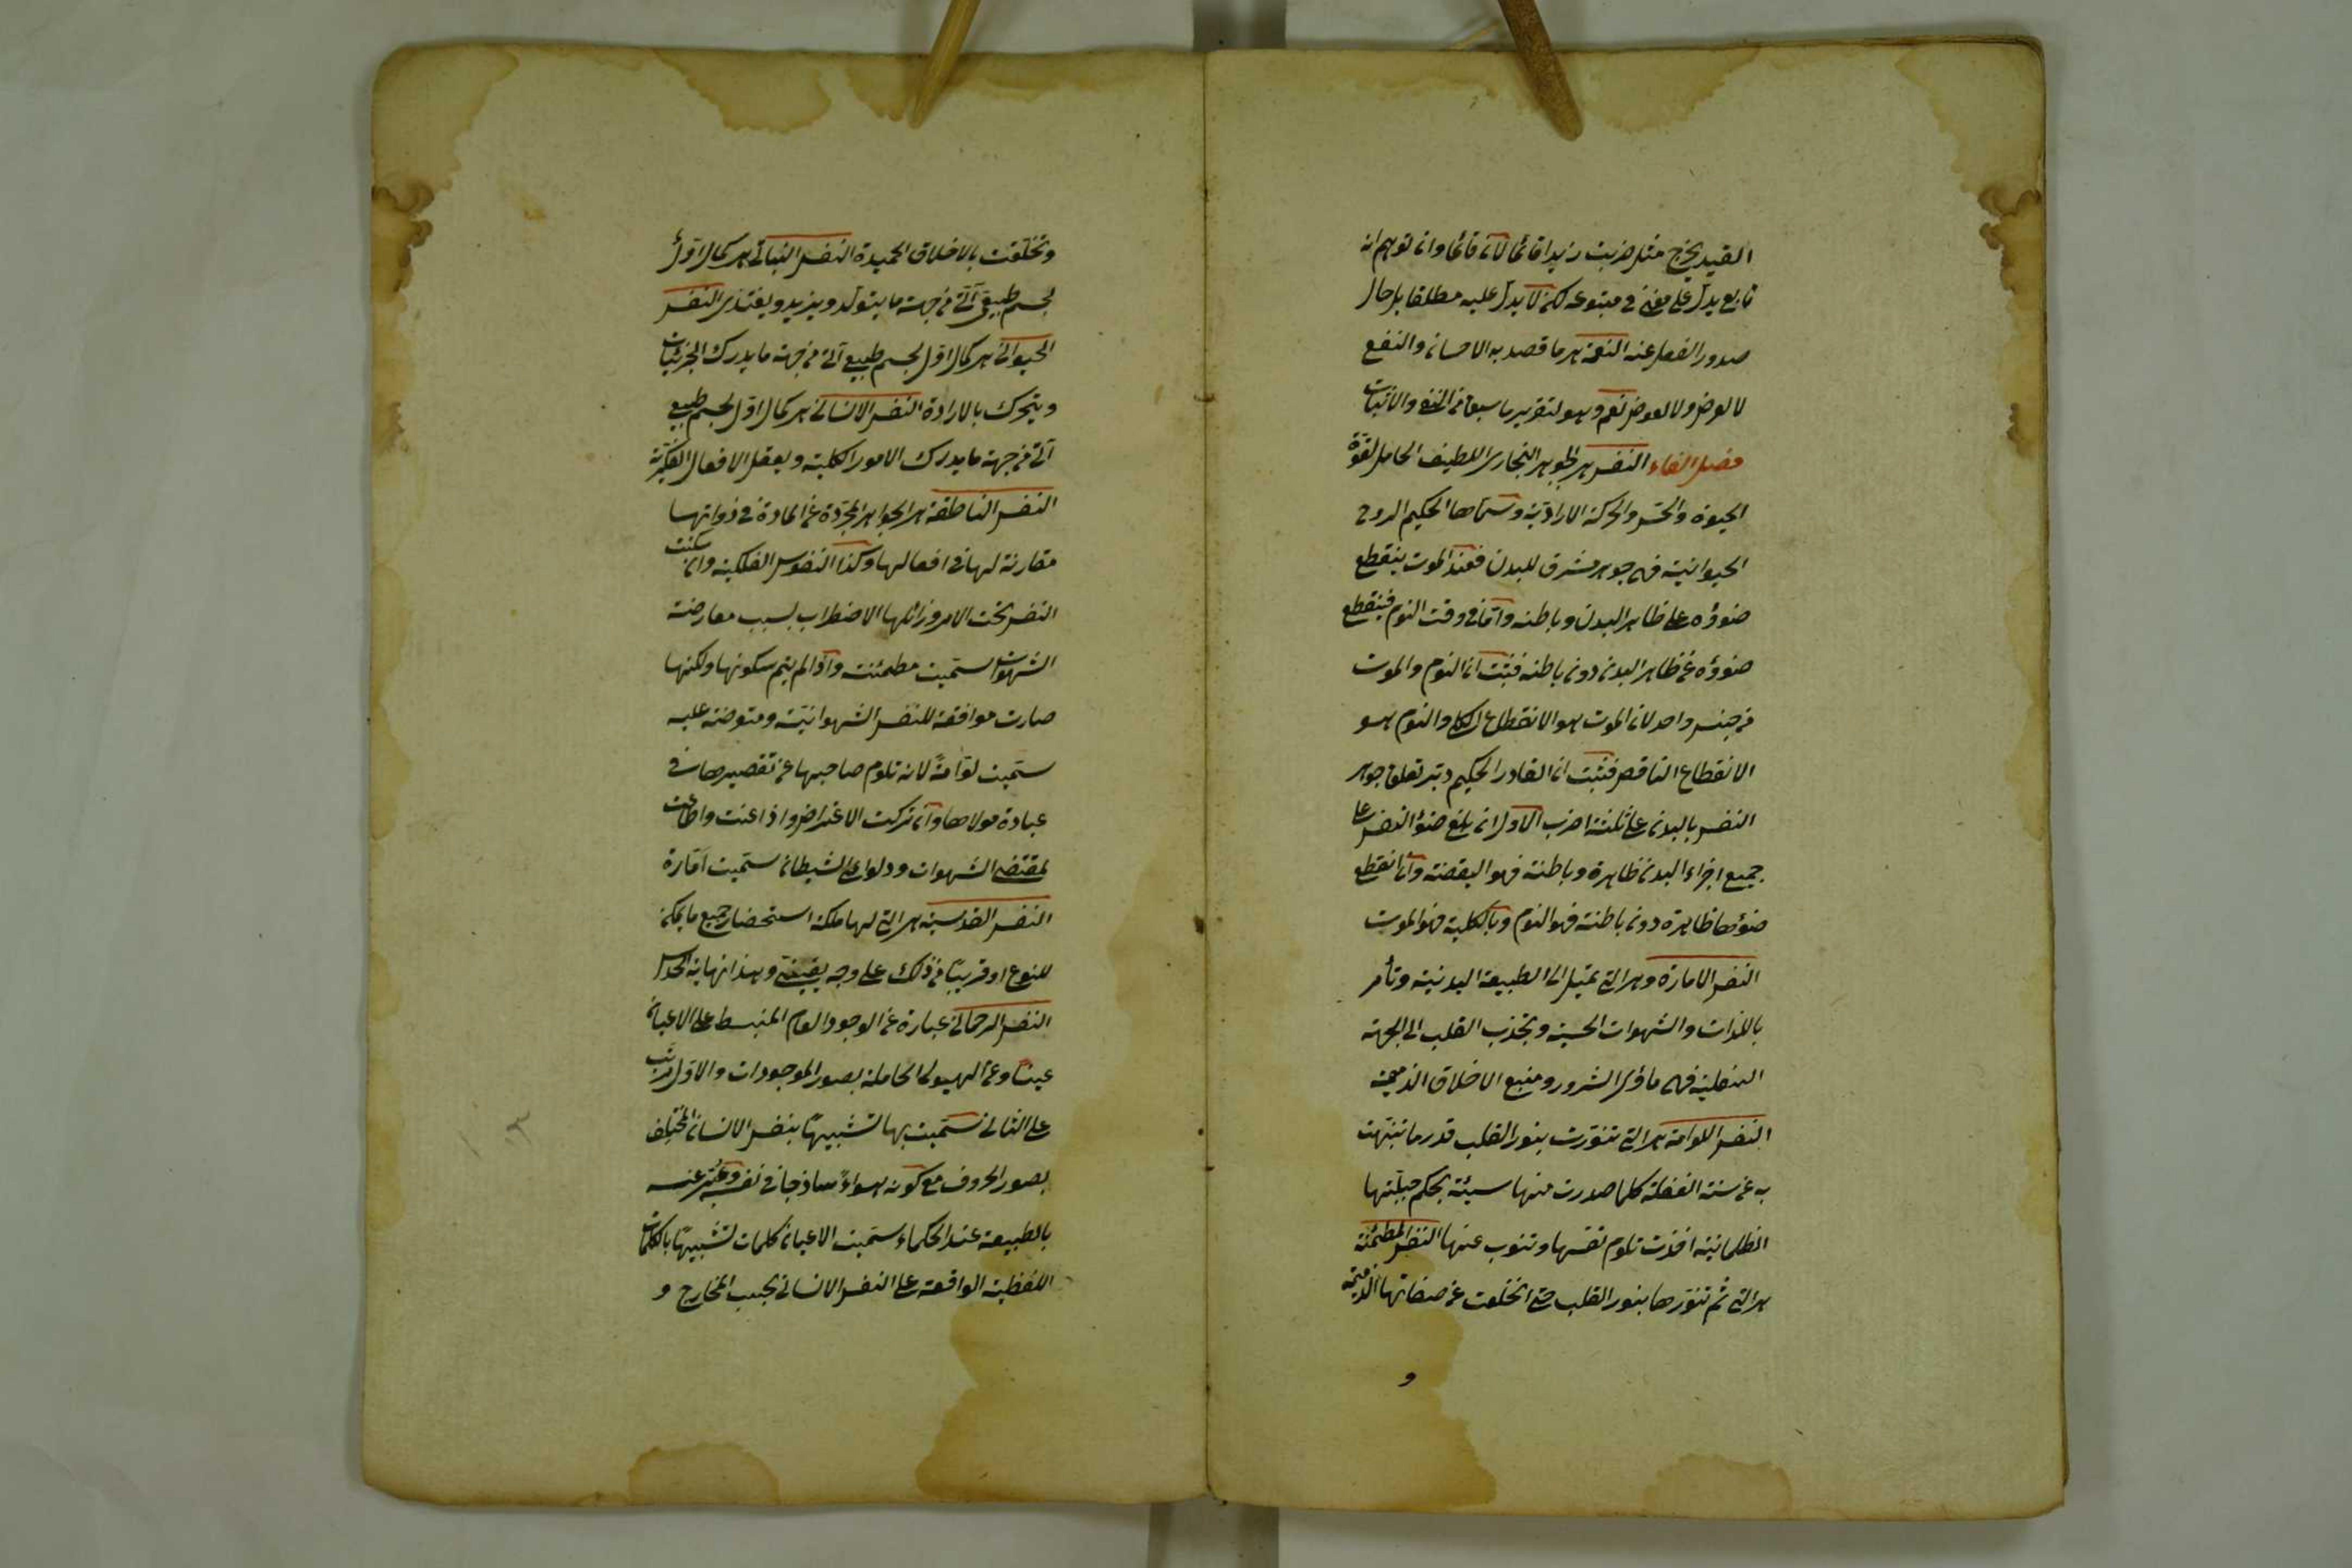 القيد يخرج مثل ضربت زيدا قائما لان قائما وان توهم انه
تابع يدل على معنى في متبوعه لكن لا يدل عليه مطلقا بل حال
صدور الفعل عنه النعمة هي ما قصد به الاحسان والنفع
لا لغرض ولا لعوض نعم وهو لتقرير ما سبق من النفي والاثبات
فصل الفاء النفس هي الجوهر البخارى اللطيف الحامل لقوة
الحيوة والحس والحركة الارادية وسماها الحكيم الروح
الحيوانية فهي جوهر مشرق للبدن فعند الموت ينقطع
ضوؤه على ظاهر البدن وباطنه واما في وقت النوم فينقطع
ضوؤه عن ظاهر البدن دون باطنه فثبت ان النوم والموت
من جنس واحد لان الموت هو الانقطاع الكلى والنوم هو
الانقطاع الناقص فثبت ان القادر الحكيم دبر تعلق جوهر
النفس بالبدن على ثلثة اضرب الاول ان بلغ ضوء النفس على
جميع اجزاء البدن ظاهرة وباطنة فهو اليقضة وان انقطع
ضوؤها ظاهرة دون باطنة فهو النوم وبالكلية فهو الموت
النفس الامارة وهي التي تميل الى الطبيعة البدنية وتأمر
باللذات والشهوات الحسية وتجذب القلب الى الجهة
السفلية فهي مأوى الشرور ومنبع الاخلاق الذميمة
النفس اللوامة هي التي تنورت بنور القلب قدر ما تنبهت
به عن سنة الغفلة كلما صدرت منها سيئة بحكم جبلتها
الظلمانية اخذت تلوم نفسها وتتوب عنها النفس المطمئنة
هي التي تم تنورها بنور القلب حتى انخلعت عن صفاتها الذميمة
و
وتخلقت بالاخلاق الحميدة النفس النباتي هي كمال اول
لجسم طبيعي آلى من جهة ما يتولد ويزيد ويغتذى النفس
الحيوانى هي كمال اول لجسم طبيعي آلى من جهة ما يدرك الجزئيات
ويتحرك بالارادة النفس الانسانى هي كمال اول لجسم طبيعي
آلى من جهة ما يدرك الامور الكلية ويعقل الافعال الفكرية
النفس الناطقة هي الجواهر المجردة عن المادة في ذواتها
مقارنة لها في افعالها وكذا النفوس الفلكية وان سكنت
النفس تحت الامر وزائلها الاضطراب بسبب معارضة
الشهوات سميت مطمئنت واذا لم يتم سكونها ولكنها
صارت موافقة للنفس الشهوانية ومتعرضة عليه
سميت لوامة لانه تلوم صاحبها عن تقصيرها في
عبادة مولاها وان تركت الاعتراض واذاعنت واطاعت
لمقتضى الشهوات ودواعى الشيطان سميت امارة
النفس القدسية هي التي لها ملكة استحضار جميع ما يمكن
للنوع او قريبا من ذلك على وجه يقينى وهذا نهاية الحدس
النفس الرحمانى عبارة عن الوجود العام المنبسط على الاعيان
عينا وعن الهيولى الحاملة بصور الموجودات والاول مرتب
على الثانى سميت بها تشبيها بنفس الانسان المختلف
بصور الحروف مع كونه هواء ساذجا في نفسه وعبر عنه
بالطبيعة عند الحكماء سميت الاعيان كلمات تشبيها بالكلمات
اللفظية الواقعة على النفس الانسانى بحسب المخارج و